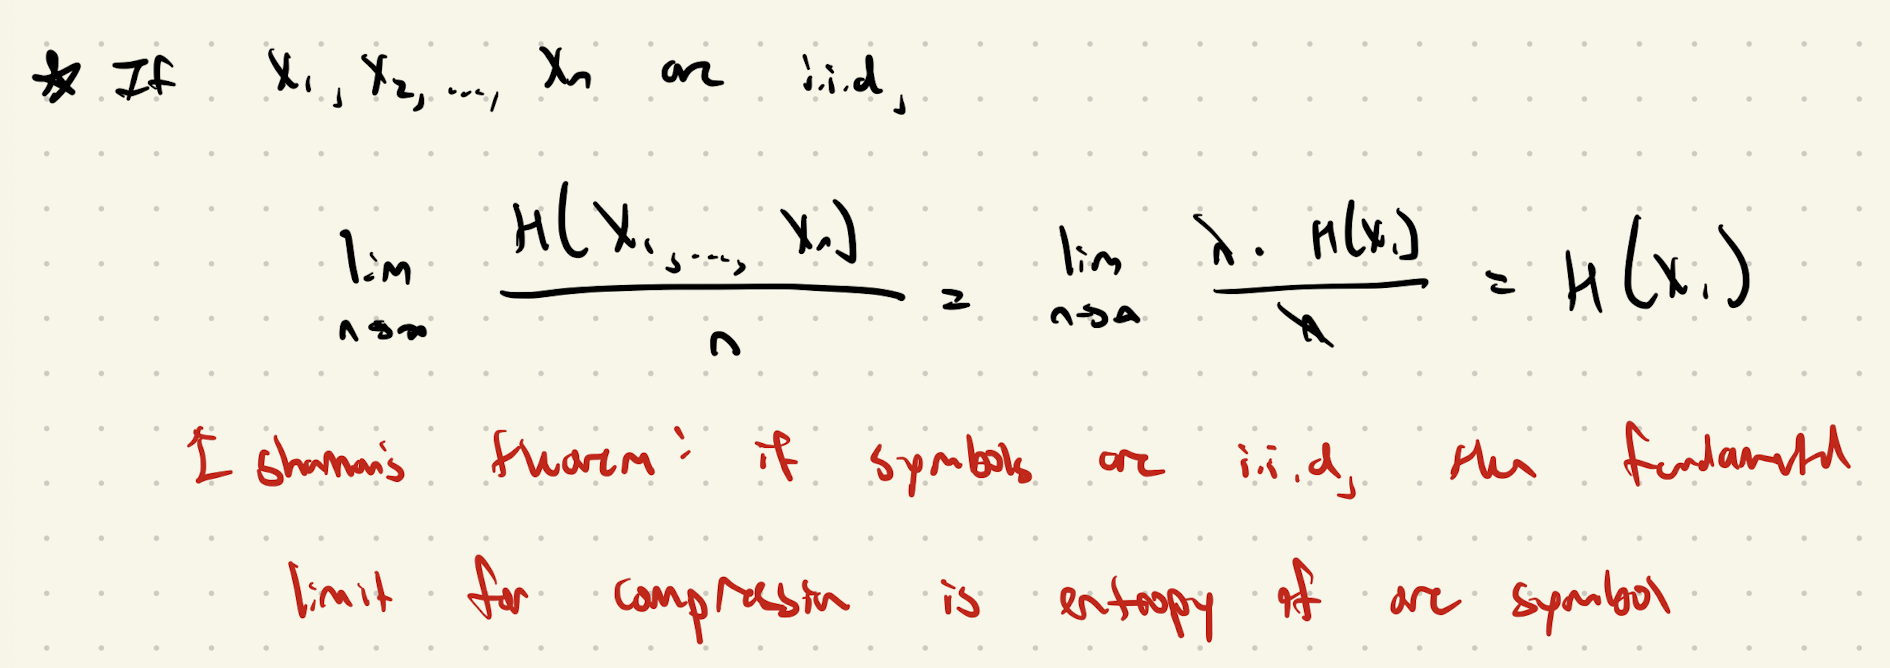 ☆ If X₁, X₂, ..., Xₙ are i.i.d,
lim n→∞ H(X₁, ..., Xₙ) / n = lim n→∞ n · H(X₁) / n = H(X₁)
[ Shannon's theorem: if symbols are i.i.d, then fundamental
limit for compression is entropy of one symbol